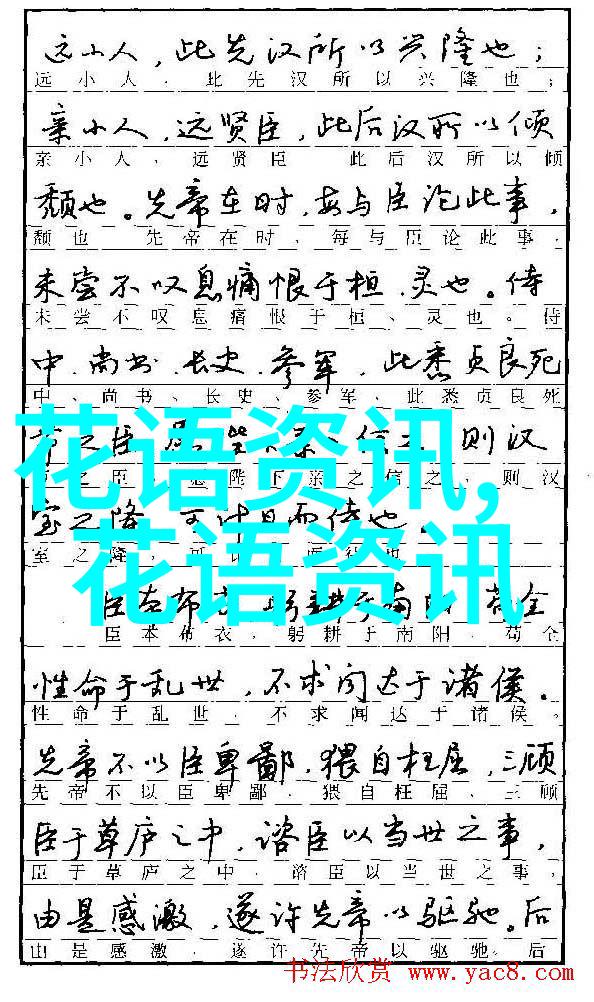 远小人，此先汉所以兴隆也；
远小人，此先汉所以兴隆也；
亲小人，远贤臣，此后汉所以倾
亲小人，远贤臣 此后汉所以倾
颓也。先帝在时，每与臣论此事，
颓也 先帝在时，每与臣论此事，
未尝不叹息痛恨于桓、灵也。侍
未尝不叹息痛恨于桓、灵也。侍
中、尚书、长史、参军，此悉贞良死
中、尚书、长史、参军，此悉贞良死
花语资讯,
节之臣 则汉
之臣 陛下亲之信之，则汉
室之隆，可计日而待也。
室之隆，可
花语资讯
臣本布衣，躬耕于南阳，苟全
臣本布衣，躬耕于南阳，苟全
性命于乱世，不求闻达于诸侯。
性命于乱世，不求闻达于诸侯。
先帝不以臣卑鄙，猥自枉屈，三顾
先帝不以臣卑鄙，猥自枉屈、三顾
臣于草庐之中，谘臣以当世之事，
臣于草庐之中，谘臣以当世之事，
由是感激，遂许先帝以驱驰。后
由是感激，遂许先帝以驱驰。后
书法欣赏 www.yac8.com